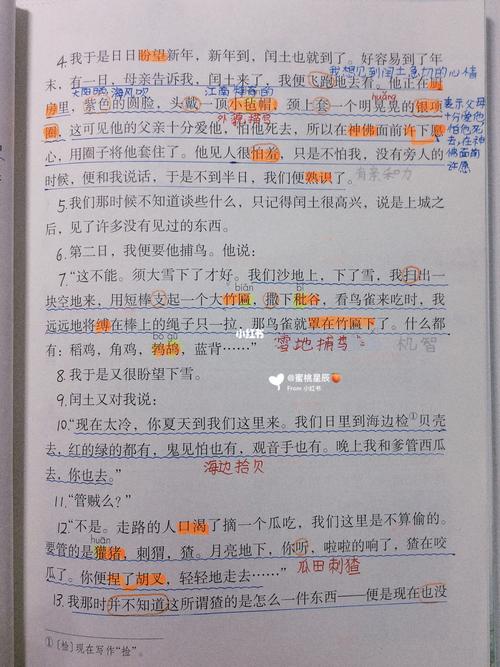 4.我于是日日盼望新年，新年到，闰土也就到了。好容易到了年
末，有一日，母亲告诉我，闰土来了，我便飞跑地去看。他正在厨
我想见到闰土急切的心情
太阳晒，海风吹
江南特有的
房里，紫色的圆脸，头戴一顶小毡帽，颈上套一个明晃晃的银项
huǎng
外貌描写
圈，这可见他的父亲十分爱他，怕他死去，所以在神佛面前许下愿
表示父母
十分爱他
怕他死
去，在神
佛面前
许愿
心，用圈子将他套住了。他见人很怕羞，只是不怕我，没有旁人的
时候，便和我说话，于是不到半日，我们便熟识了。
有亲和力
5.我们那时候不知道谈些什么，只记得闰土很高兴，说是上城之
后，见了许多没有见过的东西。
6.第二日，我便要他捕鸟。他说：
7.“这不能。须大雪下了才好。我们沙地上，下了雪，我扫出一
biǎn
bǐ
块空地来，用短棒支起一个大竹匾，撒下秕谷，看鸟雀来吃时，我
远远地将缚在棒上的绳子只一拉，那鸟雀就罩在竹匾下了。什么都
bó gū
有：稻鸡，角鸡，鹁鸪，蓝背……”
雪地捕鸟
机智
小红书
8.我于是又很盼望下雪。
@蜜桃星辰
From 小红书
9.闰土又对我说：
10.“现在太冷，你夏天到我们这里来。我们日里到海边检①贝壳
去，红的绿的都有，鬼见怕也有，观音手也有。晚上我和爹管西瓜
去，你也去。”
海边拾贝
11.“管贼么？”
12.“不是。走路的人口渴了摘一个瓜吃，我们这里是不算偷的。
huān
要管的是獾猪，刺猬，猹。月亮地下，你听，啦啦的响了，猹在咬
瓜了。你便捏了胡叉，轻轻地走去……”
瓜田刺猹
13.我那时并不知道这所谓猹的是怎么一件东西——便是现在也没
①［检］现在写作“捡”。